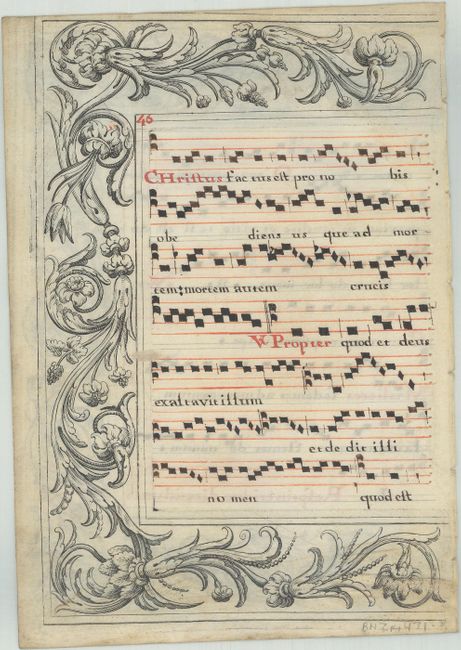 46
CHristus fac tus est pro no bis
obe diens us que ad mor
tem: mortem autem crucis
V Propter quod et deus
exaltavit illum
et de dit illi
no men quod est